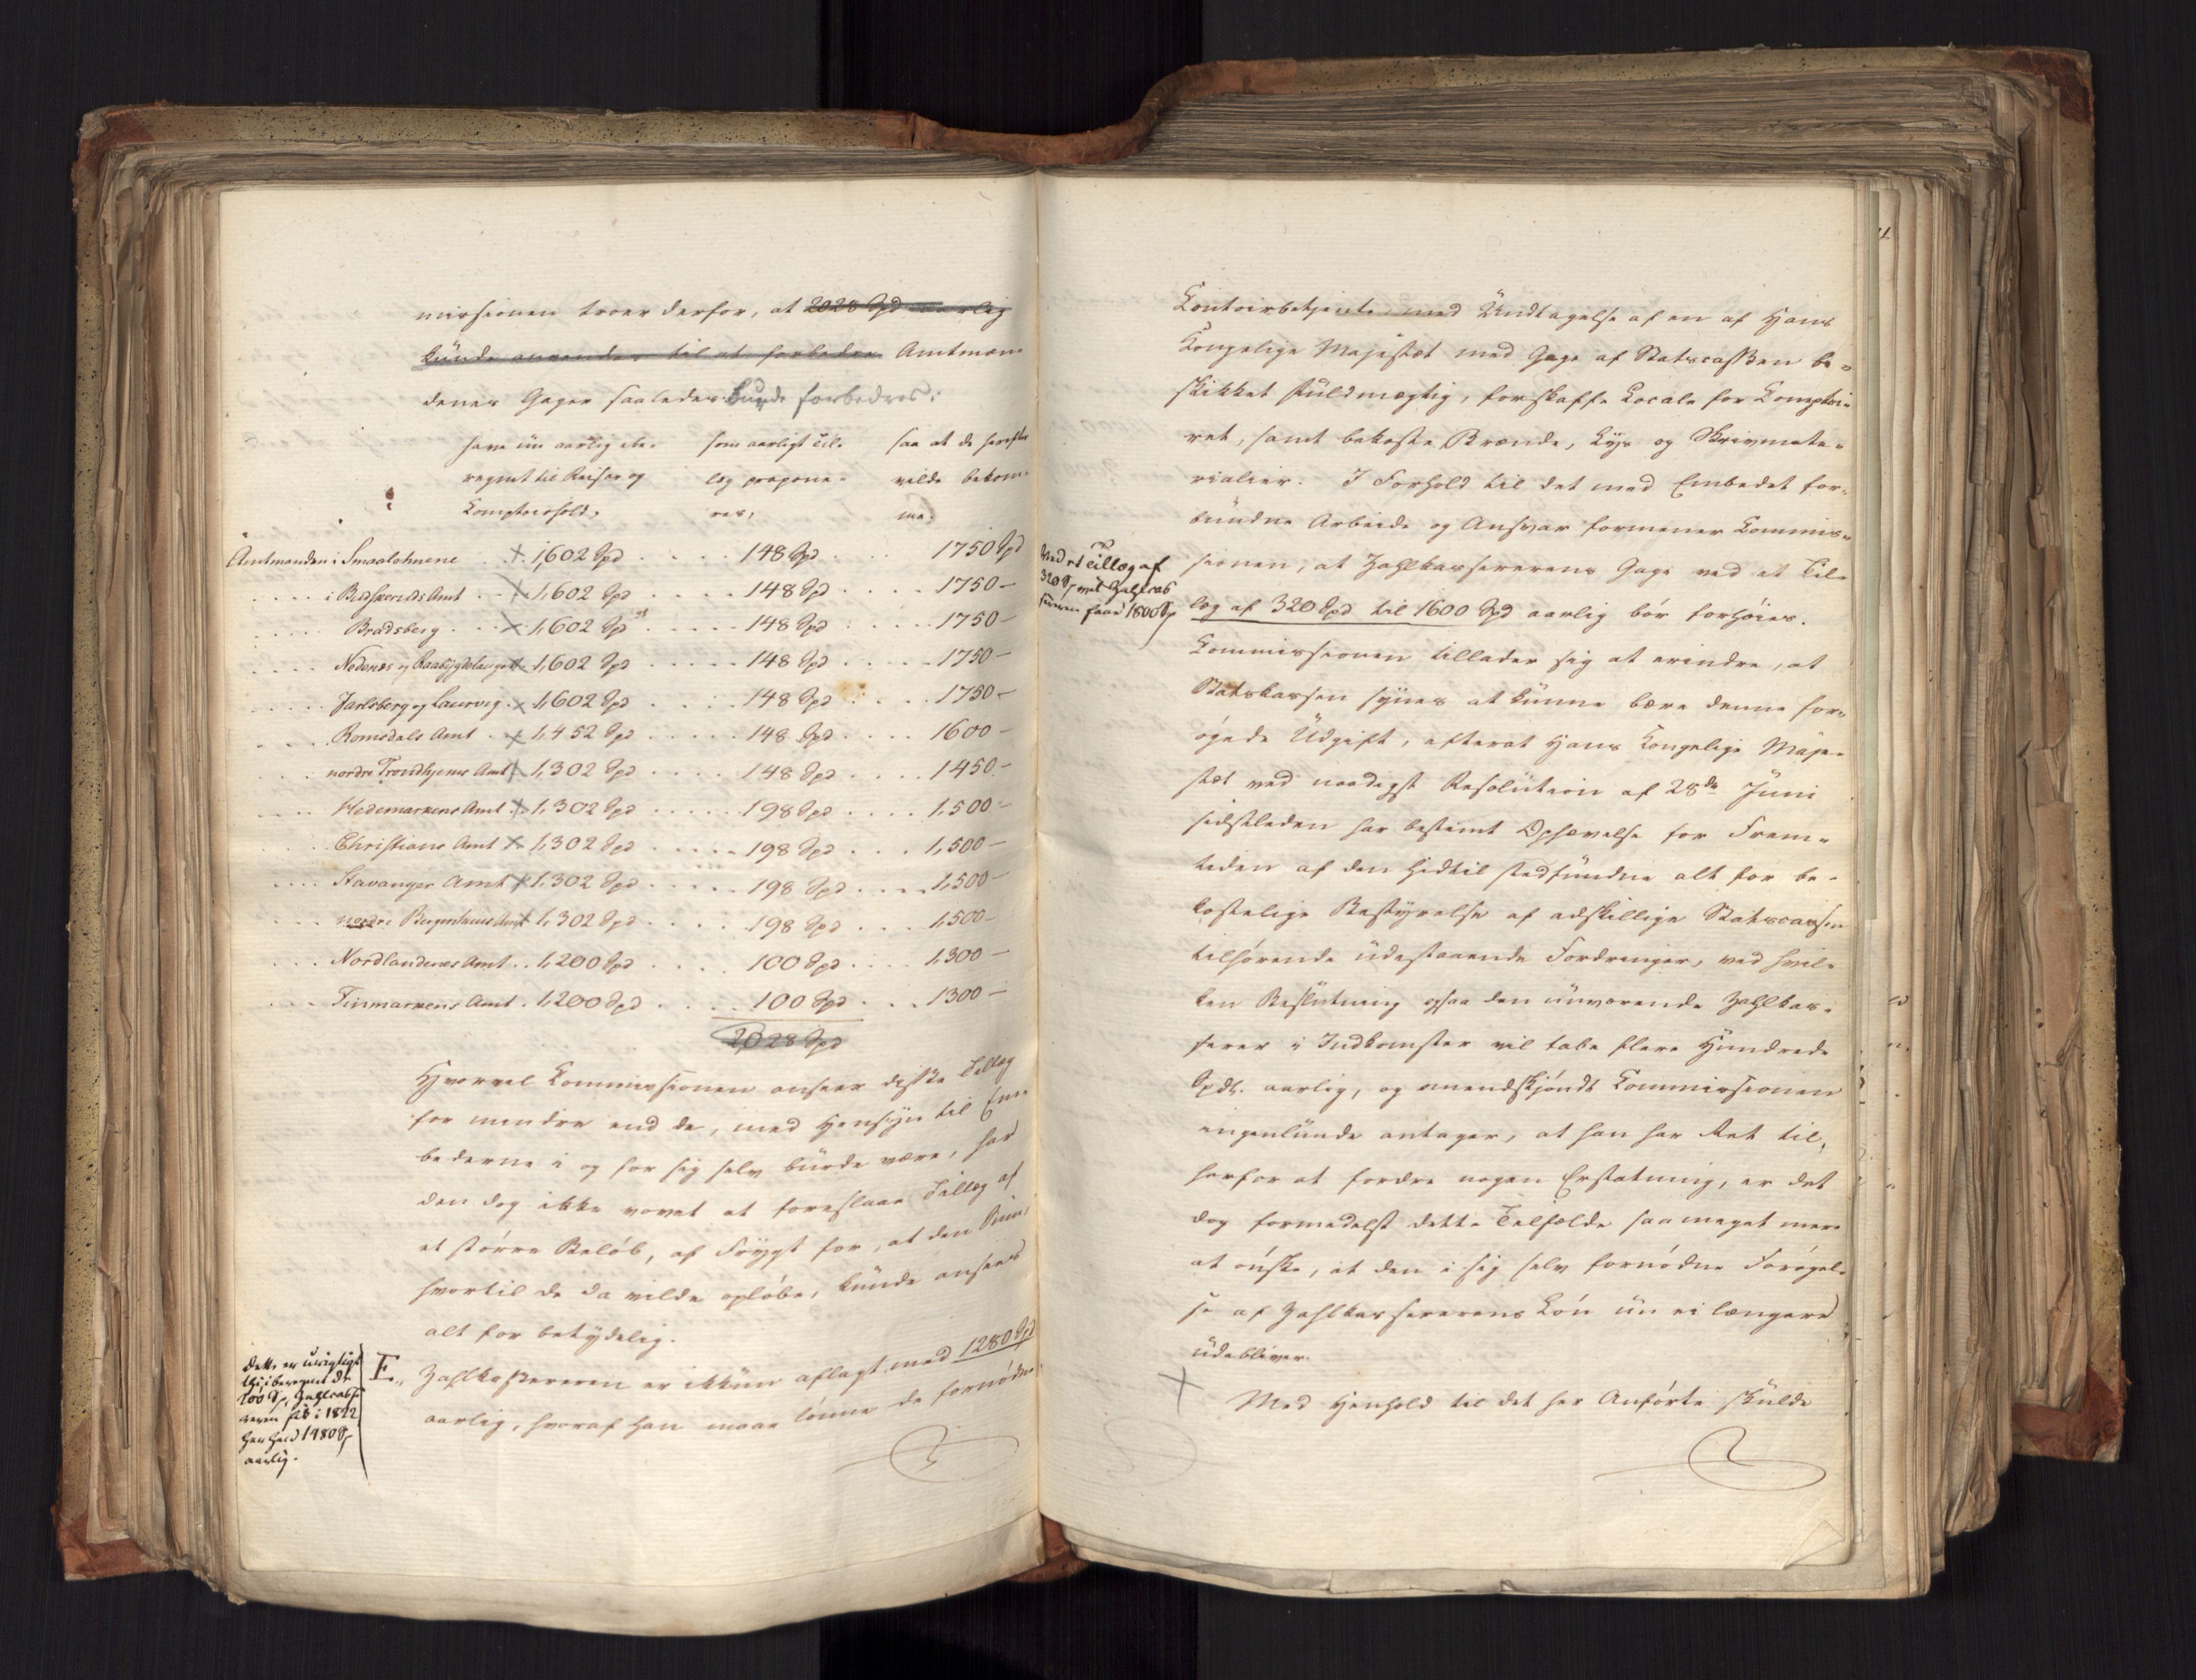 missionen troer derfor, at 2028 Spd aarlig
kunde anvendes til at forbedre Amtmæn-
denes Gager saaledes burde forbedres:
have nu aarlig ibe-
regnet til Reiser og
Comptoirhold,
som aarligt Til-
læg propone-
res,
saa at de herefter
vilde bekom-
me.
Amtmanden i Smaalehnene . + . 1,602 Spd . . . . 148 Spd . . . 1750 Spd
. . . . i Budskeruds Amt . . + 1,602 Spd . . . . . 148 Spd . . . . . 1750 —
. . . . Bradsberg . . . + 1,602 Spd . . . . . 148 Spd . . . . . 1750 —
. . . . Nedenæs og Raabygdelauget + 1,602 Spd . . . . . 148 Spd . . . . . 1750 —
. . . . Jarlsberg og Laurvig . + 1,602 Spd . . . . 148 Spd . . . . 1750 —
. . . . Romsdals Amt . + 1,452 Spd . . . . . 148 Spd . . . . 1600 —
. . . nordre Trondhjems Amt + 1,302 Spd . . . . . 148 Spd . . . . 1450 —
. . . Hedemarkens Amt . + 1,302 Spd . . . . . 198 Spd . . . . 1,500 —
. . . . Christians Amt + 1,302 Spd . . . . . 198 Spd . . . 1,500 —
. . . . Stavanger Amt + 1,302 Spd . . . . . 198 Spd . . . . 1,500 —
. . . nordre Bergenhuus Amt + 1,302 Spd . . . . 198 Spd . . . 1,500 —
. . . Nordlandenes Amt . . 1,200 Spd . . . . 100 Spd . . . 1,300 —
. . . Finmarkens Amt . 1,200 Spd . . . . 100 Spd . . . 1300 —
2,028 Spd
Hvorvel Commissionen anseer disse Tillæg
for mindre end de, med Hensyn til Em-
bederne i og for sig selv burde være, har
den dog ikke vovet at foreslaae Tillæg af
et større Beløb, af Frygt for, at den Sum,
hvortil de da vilde opløbe, kunde ansees
alt for betydelig.
Dette er urigtigt
thi iberegnet de
200 Sp, Zahlcasse-
reren fik i 1822
har han 1480 Sp
aarlig.
E., Zahlkassereren er ikkun aflagt med 1280 Spd
aarlig, hvoraf han maae lønne de fornødne
Contoirbetjente, med Undtagelse af en af Hans
Kongelige Majestæt med Gage af Statscassen be-
skikket Fuldmægtig, forskaffe Locale for Comptoi-
ret, samt bekoste Brænde, Lys og Skrivmate-
rialier. I Forhold til det med Embedet for-
bundne Arbeide og Ansvar formener Commis-
sionen, at Zahlkassererens Gage ved et Til-
læg af 320 Spd til 1600 Spd aarlig bør forhøies.
Med et Tillæg af
320 Sp vil Zahlcas-
sereren faae 1800 Sp
Commissionen tillader sig at erindre, at
Statskassen synes at kunne bære denne for-
øgede Udgift, efterat Hans Kongelige Maje-
stæt ved naadigst Resolution af 28de Juni
sidstleden har bestemt Ophævelse for Frem-
tiden af den hidtil stedfundne alt for be-
kostelige Bestyrelse af adskillige Statscassen
tilhørende udestaaende Fordringer, ved hvil-
ken Beslutning ogsaa den nuværende Zahlkas-
serer i Indkomster vil tabe flere Hundrede
Spdl. aarlig, og omendskjøndt Commissionen
ingenlunde antager, at han har Ret til,
herfor at fordre nogen Erstatning, er det
dog formedelst dette Tilfælde saa meget mere
at ønske, at den i sig selv fornødne Forøgel-
se af Zahlkassererens Løn nu ei længere
udebliver.
+ Med Henhold til det her Anførte skulde